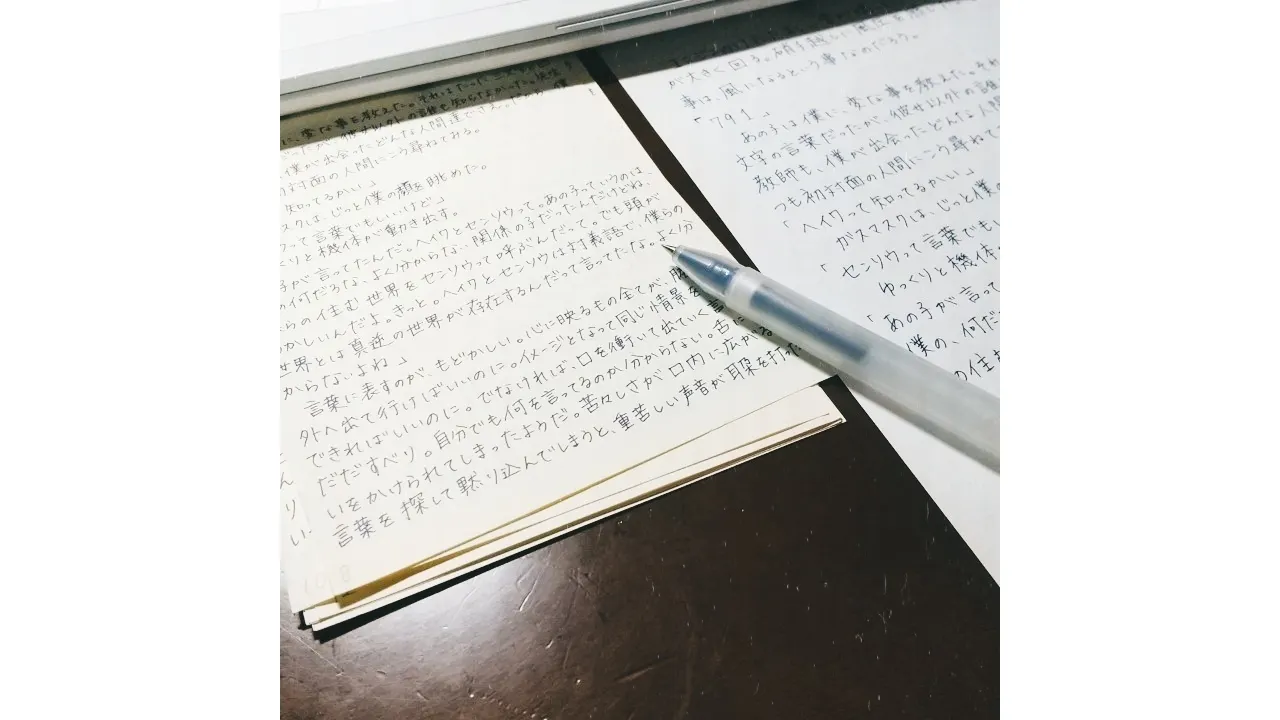 に、変な事を教えた。それはたった三文字の
僕が出会ったどんな人間達でさえ。
初対面の人間にこう尋ねてみる。
知ってるかい」
スクは、じっと僕の顔を眺めた。
って言葉でもいいけど」
くりと機体が動き出す。
子が言ってたんだ。ヘイワとセンソウって。あの子っていうのは、
の何だろな、よく分からない、関係の子だったんだけどね、
らの住む世界をセンソウって呼ぶんだって。でも頭が
かしいんだよ。きっと。ヘイワとセンソウは対義語で、僕らの
世界とは真逆の世界が存在するんだって言ってたな。よく分
からないよね」
言葉に表すのが、もどかしい。心に映るもの全てが、
外へ出て行けばいいのに。イメージとなって同じ情景を
できればいいのに。でなければ、口を衝いて出ていく言
だだすべり。自分でも何を言ってるのか分からない。舌に
いをかけられてしまったようだ。苦々しさが口内に広がる。
言葉を探して黙り込んでしまうと、重苦しい声音が耳朶を打った
が大きく回る。硝子越しに風圧を
事は、風になるという事なのだろう。
「791」
あの子は僕に、変な事を教えた。それ
文字の言葉だったが、彼女以外の誰
教師も、僕が出会ったどんな人間
つも初対面の人間にこう尋ねて
「ヘイワって知ってるかい」
ガスマスクは、じっと僕の
「センソウって言葉でもい
ゆっくりと機体
「あの子が言って
僕の、何だ
の住